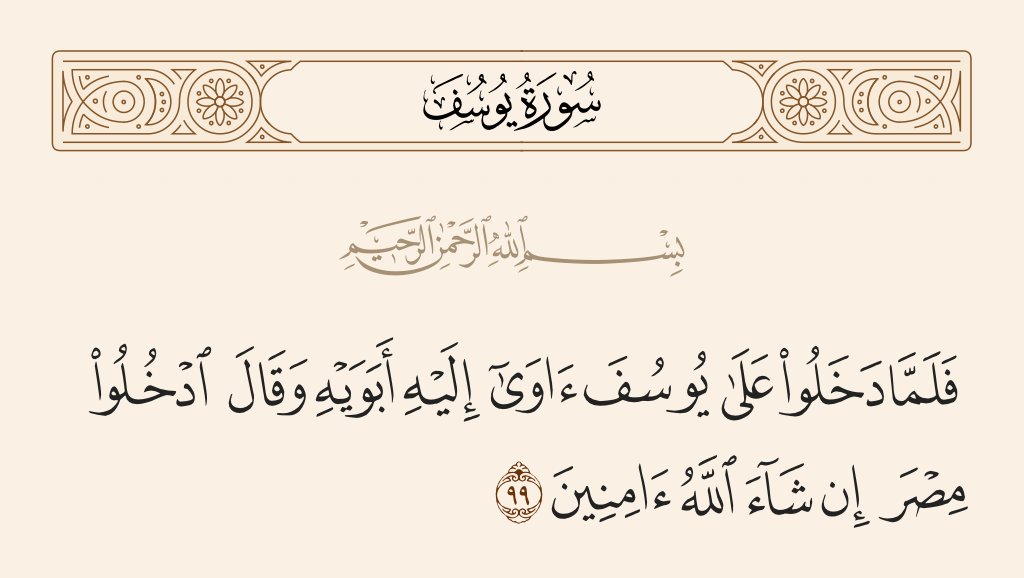 سُورَةُ يُوسُفَ
بِسْمِ ٱللَّهِ ٱلرَّحْمَٰنِ ٱلرَّحِيمِ
فَلَمَّا دَخَلُوا۟ عَلَىٰ يُوسُفَ ءَاوَىٰٓ إِلَيْهِ أَبَوَيْهِ وَقَالَ ٱدْخُلُوا۟
مِصْرَ إِن شَآءَ ٱللَّهُ ءَامِنِينَ ٩٩